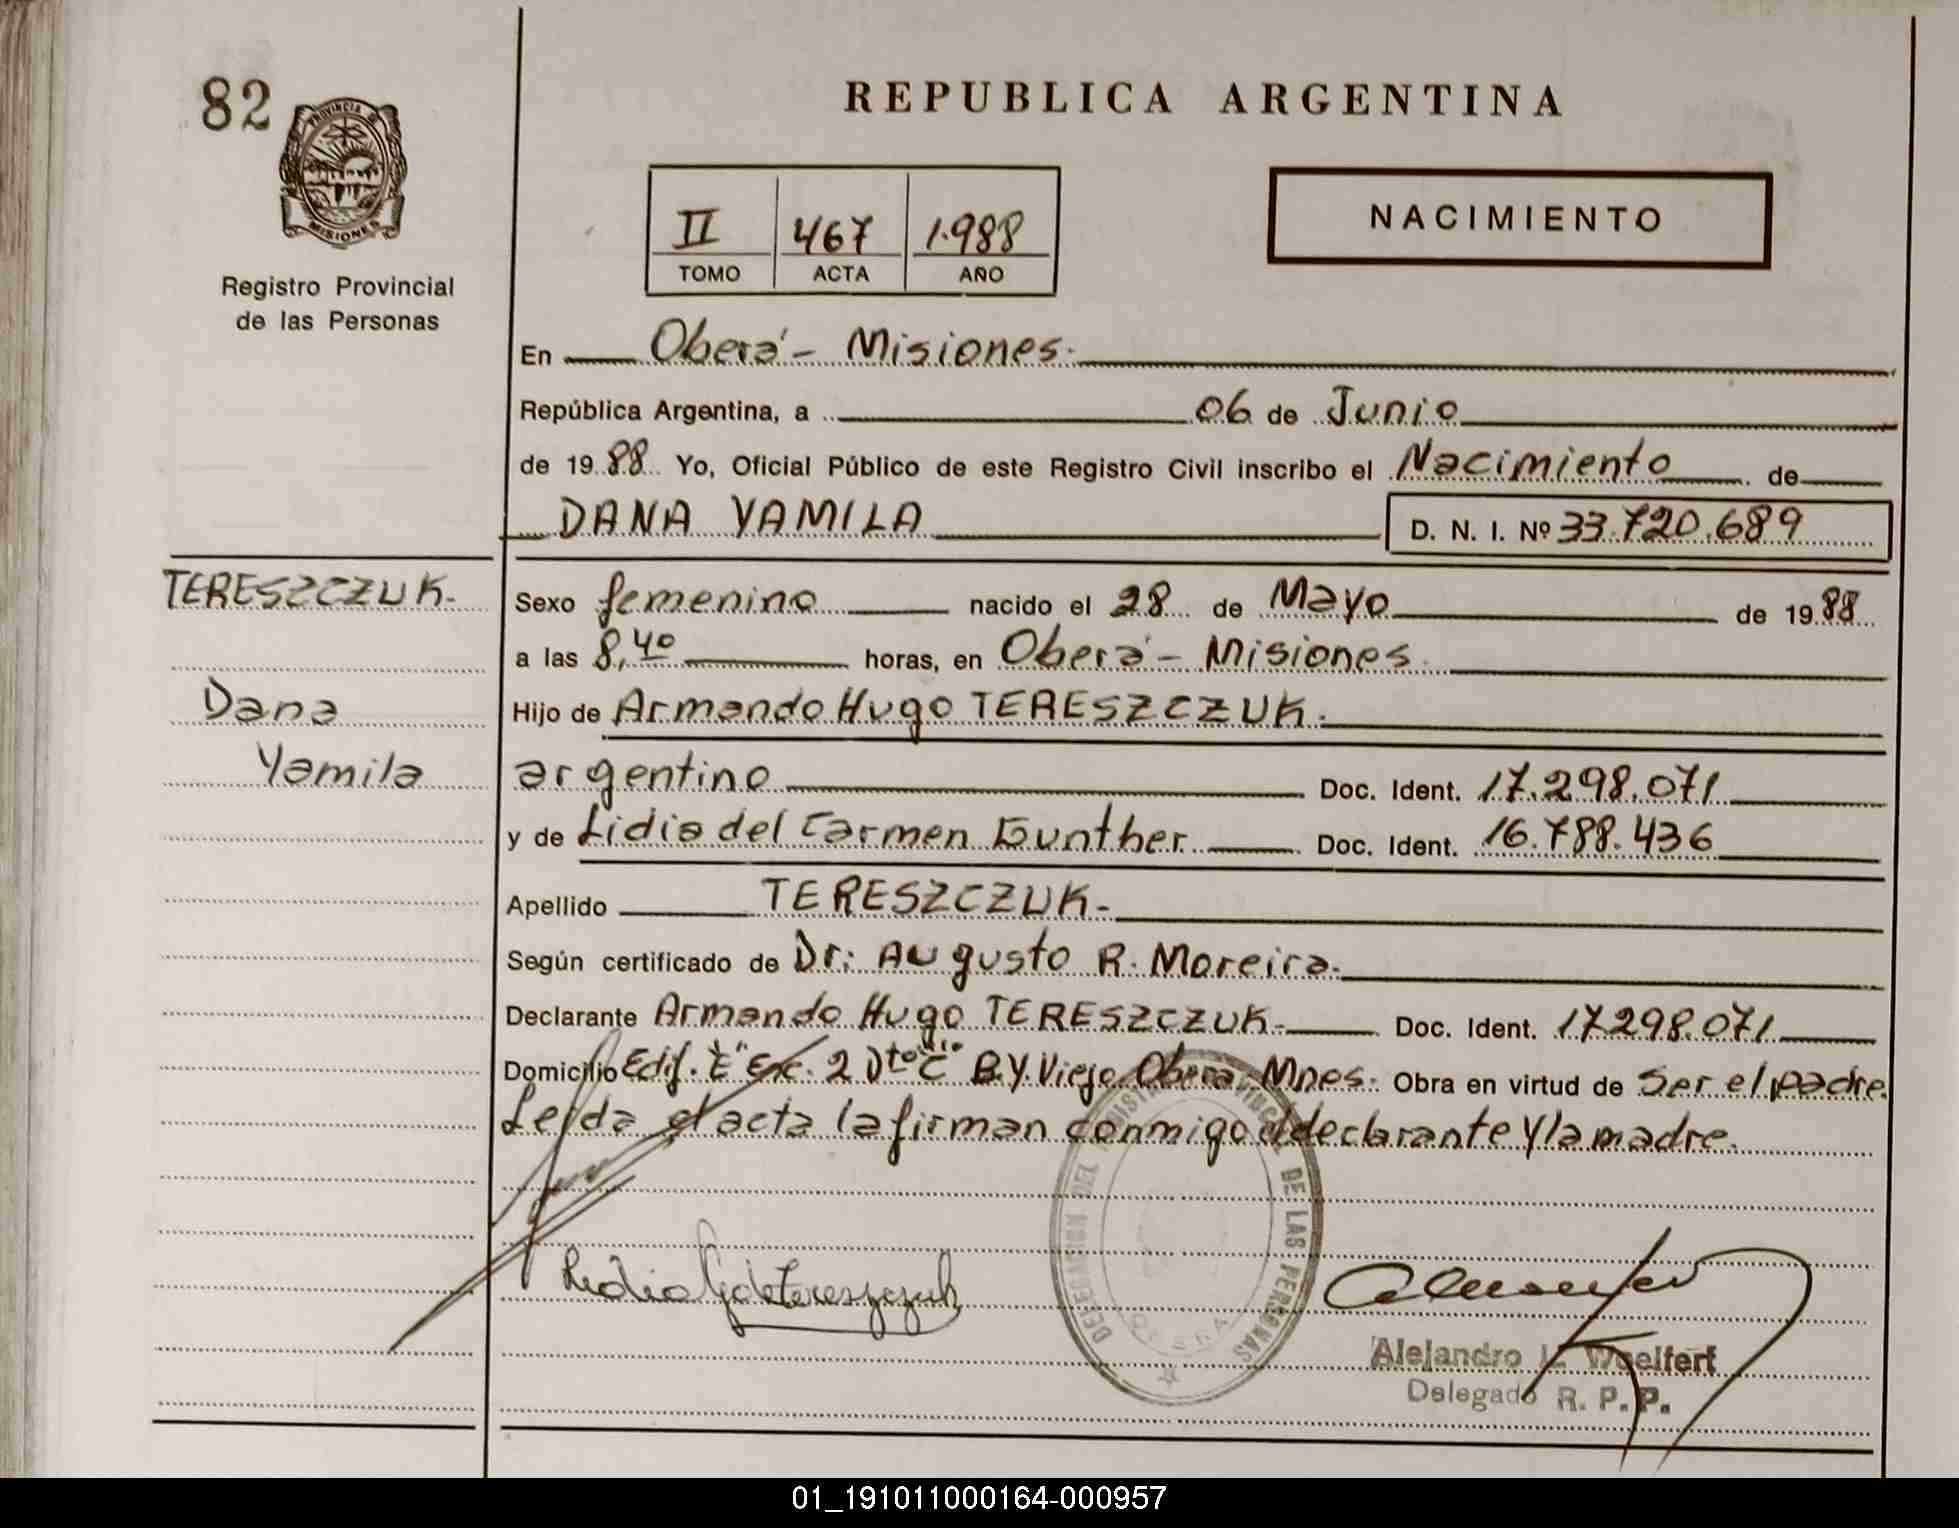 82
PROVINCIA DE
MISIONES
Registro Provincial
de las Personas
REPUBLICA ARGENTINA
II 467 1.988
TOMO ACTA AÑO
NACIMIENTO
En Oberá - Misiones.
República Argentina, a 06 de Junio
de 19 88 Yo, Oficial Público de este Registro Civil inscribo el Nacimiento de
DANA YAMILA D. N. I. Nº 33.720.689
TERESZCZUK.
Dana
Yamila
Sexo femenino nacido el 28 de Mayo de 19 88
a las 8,40 horas, en Oberá - Misiones.
Hijo de Armando Hugo TERESZCZUK.
argentino Doc. Ident. 17.298.071
y de Lidia del Carmen Gunther Doc. Ident. 16.788.436
Apellido TERESZCZUK.
Según certificado de Dr: Augusto R. Moreira.
Declarante Armando Hugo TERESZCZUK Doc. Ident. 17.298.071
Domicilio Edif. "E" Esc. 2 Dto "C" B.Y. Viejo Oberá, Mnes. Obra en virtud de Ser el padre.
Leída el acta la firman conmigo el declarante y la madre.
Lidia G de Tereszczuk
DELEGACION DEL REGISTRO PROVINCIAL DE LAS PERSONAS
OBERA
Alejandro L. Woelfert
Delegado R. P. P.
01_191011000164-000957